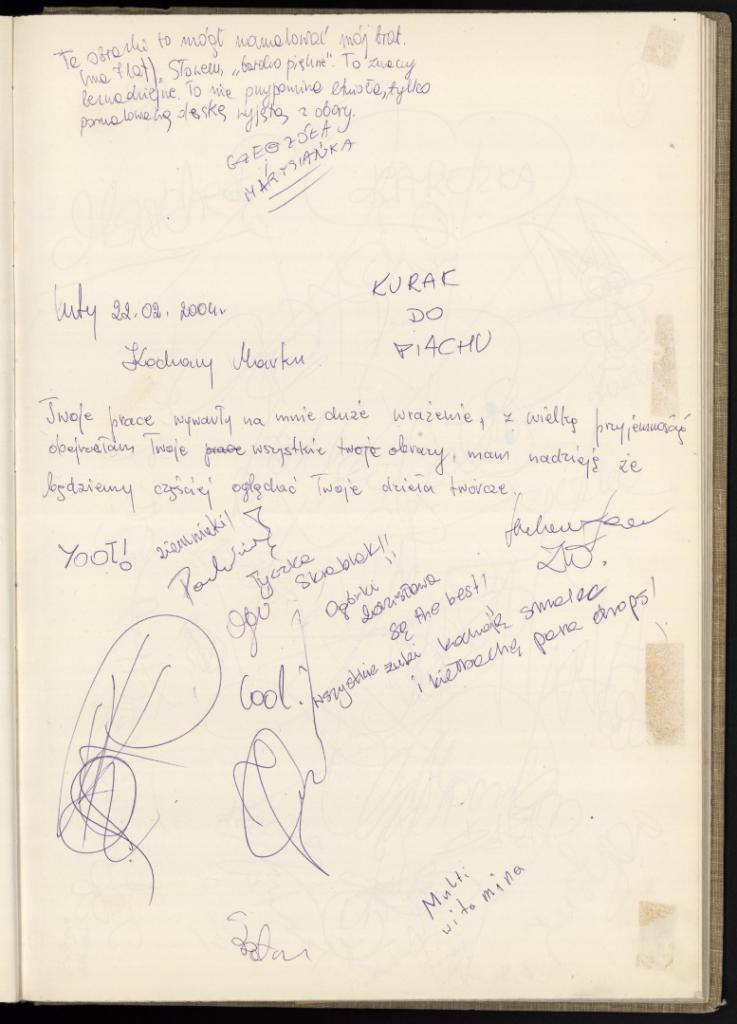 Te obrazki to mógł namalować mój brat.
(ma 7 lat). Słowem, „bardzo piękne". To znaczy
beznadziejne. To nie przypomina etnoła, tylko
pomalowaną deskę wyjętą z obory.
GRZEGZÓŁA
i
MARYSIAŃKA
KURAK
DO
PIACHU
Luty 22.02.2004r
Kochany Marku
Twoje prace wywarły na mnie duże wrażenie, z wielką przyjemnością
obejrzałam Twoje prace wszystkie twoje obrazy, mam nadzieję że
będziemy częściej oglądać Twoje dzieła twórcze.
YOOT!
ziemniaki!
Tyczka
Skrablak!!
Ogórki
są the best!
wszystkie żuki kochają smalec
i kiełbachę, para drops!
Cool!
Multi
wita mina